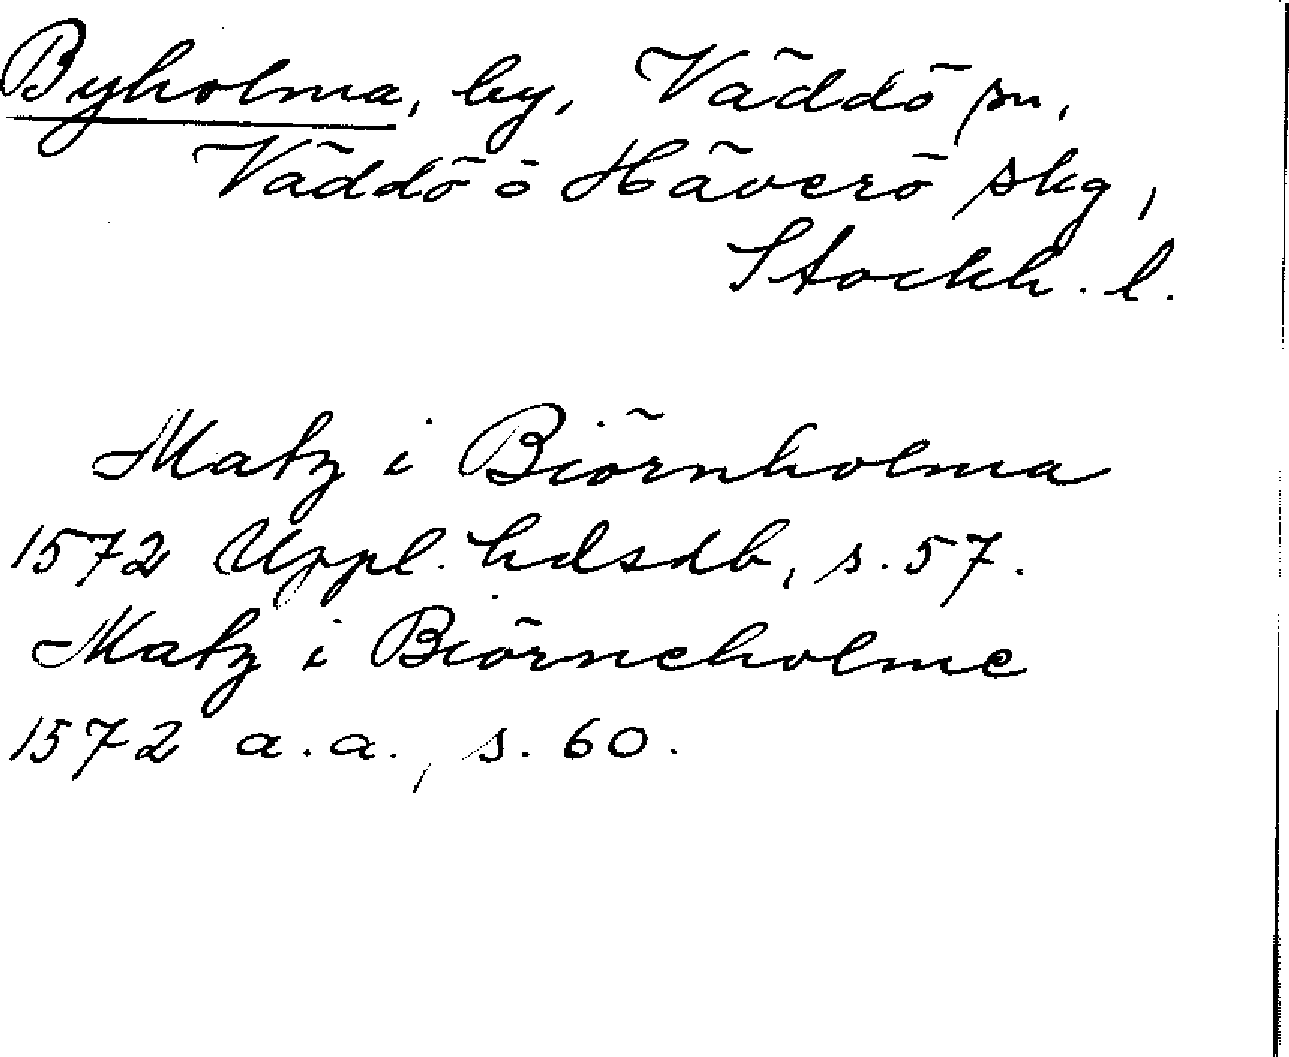 Byholma, by, Väddö sn,
Väddö ö Häverö skg,
Stockh. l.
Matz i Biörnholma
1572 Uppl. hdsdb, s. 57.
Matz i Biörneholme
1572 a.a., s. 60.